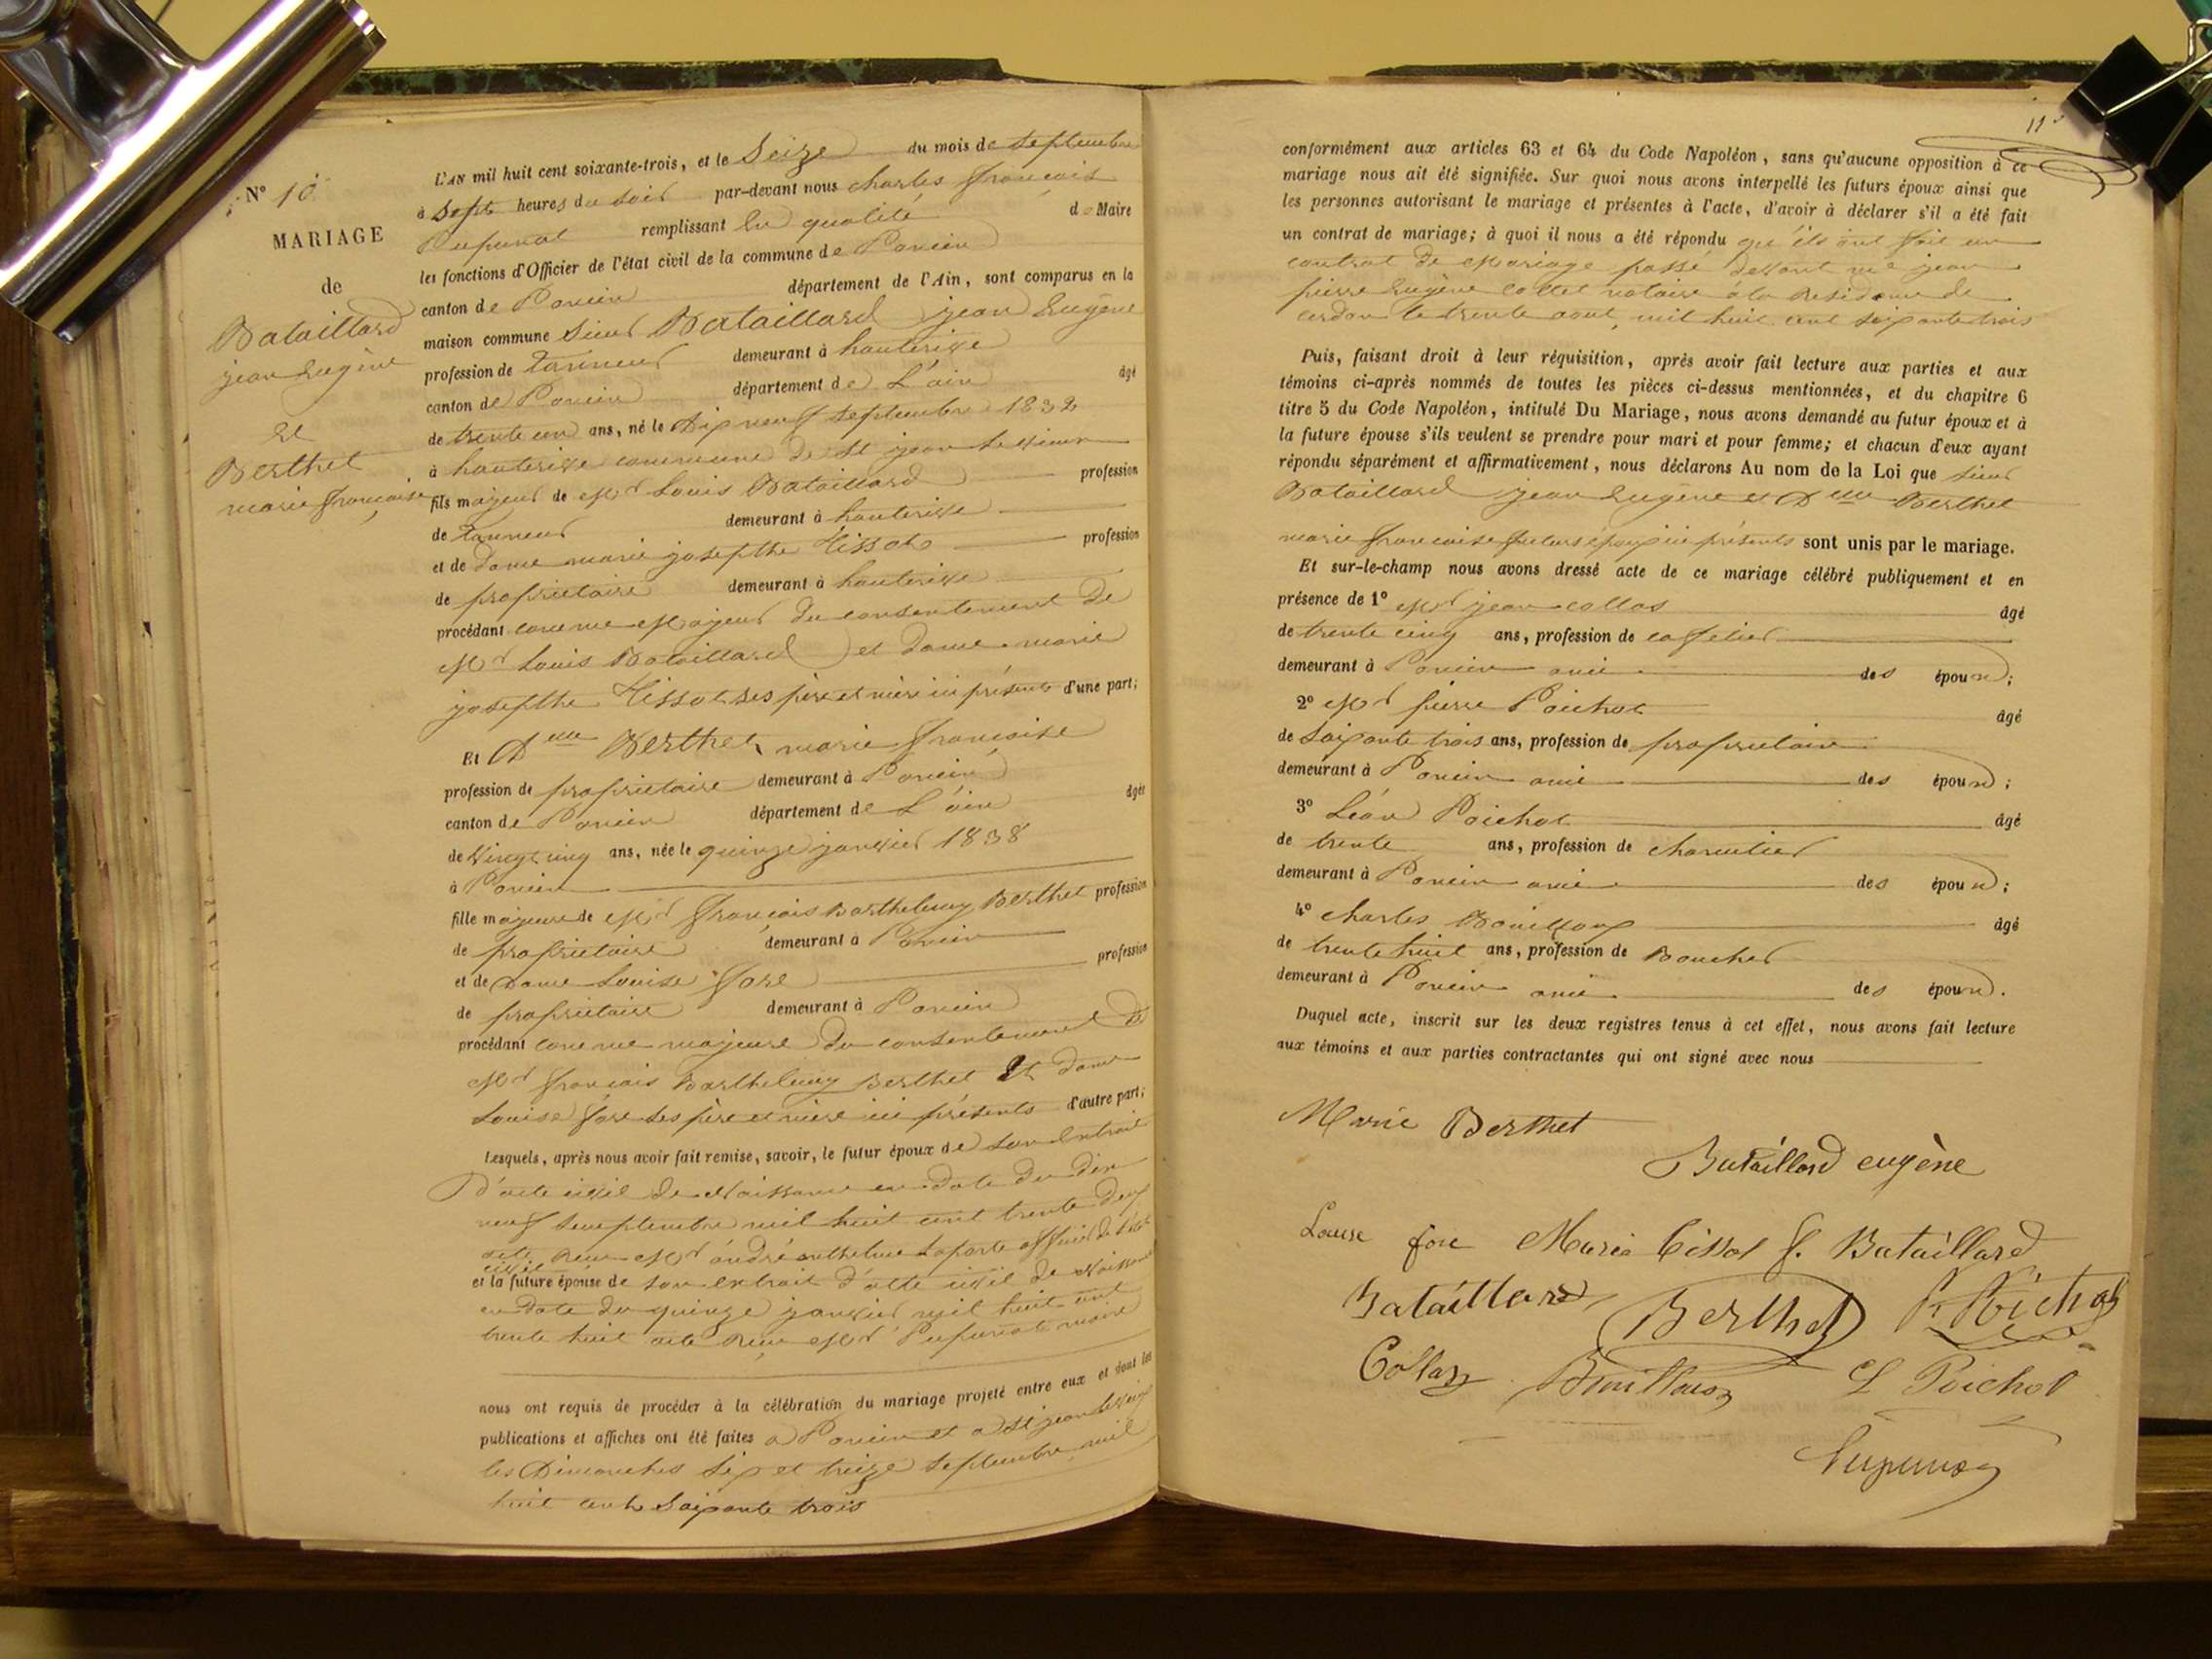 N° 10
MARIAGE
de
Bataillard
jean Eugène
et
Berthet
marie françoise
L'AN mil huit cent soixante-trois, et le Seize du mois de Septembre
à Sept heures du soir par-devant nous charles françois
remplissant en qualité de Maire
les fonctions d'Officier de l'état civil de la commune de Poncin
canton de Poncin département de l'Ain, sont comparus en la
maison commune Sieur Bataillard jean Eugène
profession de tanneur demeurant à hauterive
canton de Poncin département de L'ain âgé
de trente un ans, né le Dix neuf Septembre 1832
à hauterive commune de St jean le vieux
fils majeur de Mr Louis Bataillard profession
de tanneur demeurant à hauterive
et de Dame marie josepthe Tissot profession
de propriétaire demeurant à hauterive
procédant comme Majeur du consentement de
Mr Louis Bataillard et dame marie
josepthe Tissot ses père et mère ici présents d'une part;
Et Delle Berthet marie françoise
profession de propriétaire demeurant à Poncin
canton de Poncin département de L'ain âgée
de Vingt cinq ans, née le quinze janvier 1838
à Poncin
fille majeure de Mr françois Barthelemy Berthet profession
de propriétaire demeurant à Poncin
et de Dame Louise fore profession
de propriétaire demeurant à Poncin
procédant comme majeure du consentement de
Mr françois Barthelemy Berthet Et dame
Louise fore ses père et mère ici présents d'autre part;
Lesquels, après nous avoir fait remise, savoir, le futur époux de son Extrait
D'acte civil de Naissance en date du dix
neuf semptembre mil huit cent trente deux
acte reçu Mr andré anthelme Laporte officier de l'état
civil
et la future épouse de son extrait d'acte civil de Naissance
en date du quinze janvier mil huit cent
trente huit acte reçu Mr maire
nous ont requis de procéder à la célébration du mariage projeté entre eux et dont les
publications et affiches ont été faites à Poncin et à St jean le vieux
les Dimanches six et treize Septembre mil
huit cent Soixante trois
11
conformément aux articles 63 et 64 du Code Napoléon, sans qu'aucune opposition à ce
mariage nous ait été signifiée. Sur quoi nous avons interpellé les futurs époux ainsi que
les personnes autorisant le mariage et présentes à l'acte, d'avoir à déclarer s'il a été fait
un contrat de mariage; à quoi il nous a été répondu qu'ils ont fait un
contrat de Mariage passé devant me jean
pierre Eugène Collet notaire à la Residence de
cerdon le trente aout mil huit cent soixante trois
Puis, faisant droit à leur réquisition, après avoir fait lecture aux parties et aux
témoins ci-après nommés de toutes les pièces ci-dessus mentionnées, et du chapitre 6
titre 5 du Code Napoléon, intitulé Du Mariage, nous avons demandé au futur époux et à
la future épouse s'ils veulent se prendre pour mari et pour femme; et chacun d'eux ayant
répondu séparément et affirmativement, nous déclarons Au nom de la Loi que Sieur
Bataillard jean Eugène et Delle Berthet
marie francoise futurs époux ici présents sont unis par le mariage.
Et sur-le-champ nous avons dressé acte de ce mariage célébré publiquement et en
présence de 1° Mr jean collas âgé
de trente cinq ans, profession de cafetier
demeurant à Poncin ami des époux;
2° Mr pierre Poichot âgé
de Soixante trois ans, profession de propriétaire
demeurant à Poncin ami des époux;
3° Léon Poichot âgé
de trente ans, profession de charcutier
demeurant à Poncin ami des époux;
4° charles Bouilloux âgé
de trente huit ans, profession de Boucher
demeurant à Poncin ami des époux.
Duquel acte, inscrit sur les deux registres tenus à cet effet, nous avons fait lecture
aux témoins et aux parties contractantes qui ont signé avec nous
Marie Berthet
Bataillard eugène
Louise fore Maria Tissot f. Bataillard
Bataillard Berthet P. Poichot
Collas Bouilloux L Poichot